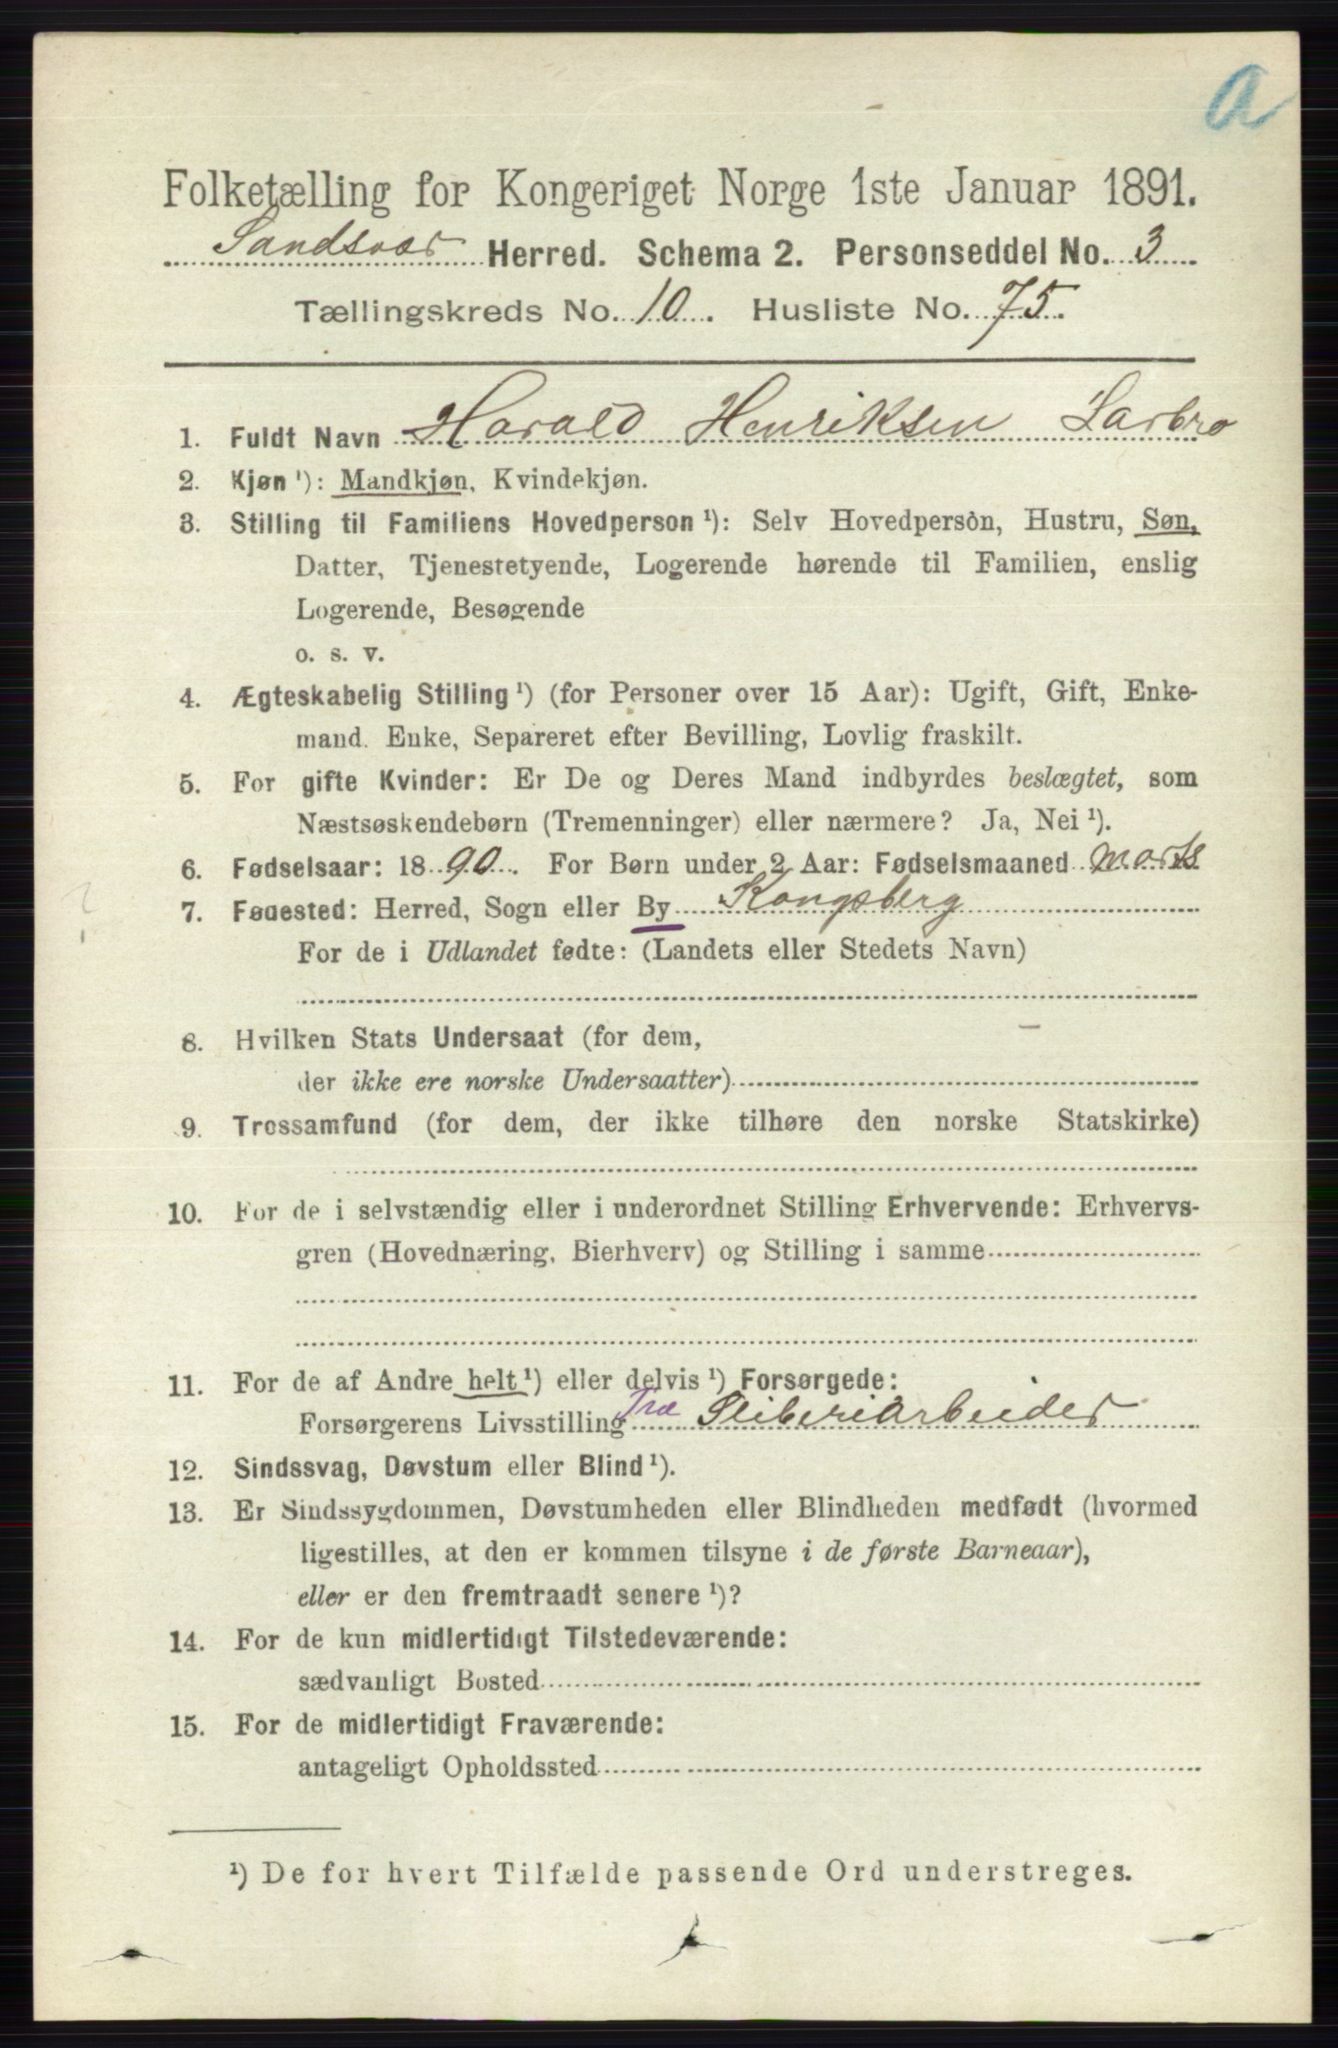 a
Folketælling for Kongeriget Norge 1ste Januar 1891.
Sandsvær Herred. Schema 2. Personseddel No. 3
Tællingskreds No. 10. Husliste No. 75.
1. Fuldt Navn Harald Henriksen Labro
2. Kjøn ¹): Mandkjøn, Kvindekjøn.
3. Stilling til Familiens Hovedperson ¹): Selv Hovedperson, Hustru, Søn,
Datter, Tjenestetyende, Logerende hørende til Familien, enslig
Logerende, Besøgende
o. s. v.
4. Ægteskabelig Stilling ¹) (for Personer over 15 Aar): Ugift, Gift, Enke-
mand. Enke, Separeret efter Bevilling, Lovlig fraskilt.
5. For gifte Kvinder: Er De og Deres Mand indbyrdes beslægtet, som
Næstsøskendebørn (Tremenninger) eller nærmere? Ja, Nei ¹).
6. Fødselsaar: 1890. For Børn under 2 Aar: Fødselsmaaned Marts
7. Fødested: Herred, Sogn eller By Kongsberg
For de i Udlandet fødte: (Landets eller Stedets Navn)
8. Hvilken Stats Undersaat (for dem,
der ikke ere norske Undersaatter)
9. Trossamfund (for dem, der ikke tilhøre den norske Statskirke)
10. For de i selvstændig eller i underordnet Stilling Erhvervende: Erhvervs-
gren (Hovednæring, Bierhverv) og Stilling i samme
11. For de af Andre helt ¹) eller delvis ¹) Forsørgede:
Forsørgerens Livsstilling Træ Sliberiarbeider
12. Sindssvag, Døvstum eller Blind ¹).
13. Er Sindssygdommen, Døvstumheden eller Blindheden medfødt (hvormed
ligestilles, at den er kommen tilsyne i de første Barneaar),
eller er den fremtraadt senere ¹)?
14. For de kun midlertidigt Tilstedeværende:
sædvanligt Bosted
15. For de midlertidigt Fraværende:
antageligt Opholdssted
¹) De for hvert Tilfælde passende Ord understreges.